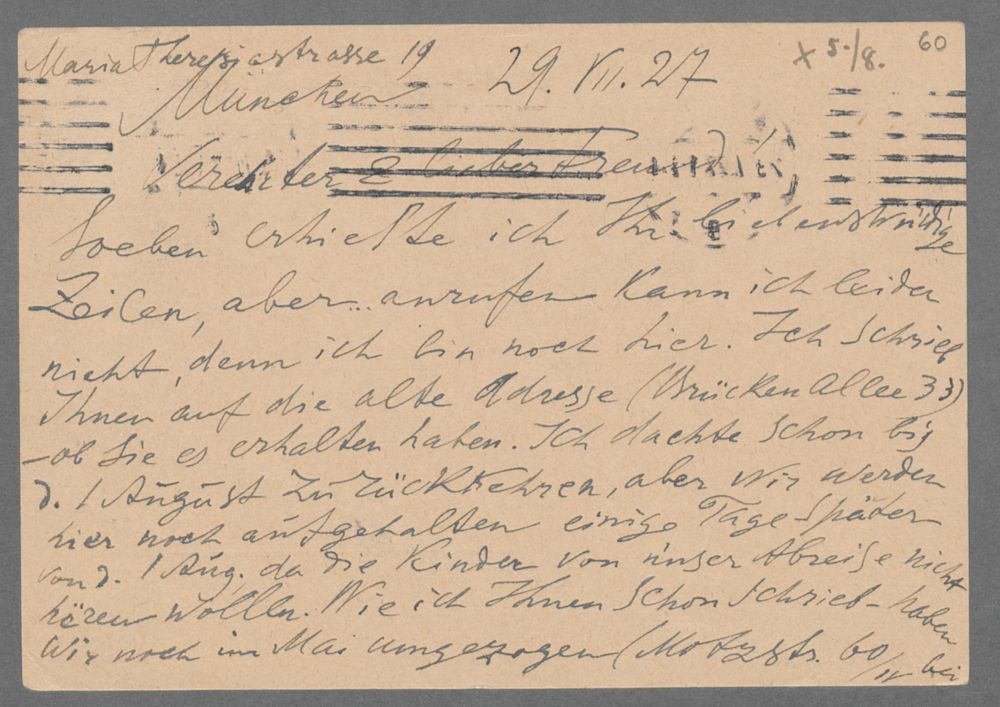 60
x 5./8.
Maria Theresiastrasse 19
München 29. VII. 27
Verehrter & lieber Freund!,
Soeben erhielte ich Ihr liebenswürdige
Zeilen, aber... anrufen kann ich leider
nicht, denn ich bin noch hier. Ich schrieb
Ihnen auf die alte Adresse (Brücken Allee 33)
– ob Sie es erhalten haben. Ich dachte schon bis
d. 1 August zurückkehren, aber wir werden
hier noch aufgehalten einige Tage später
von d. 1 Aug. da die Kinder von unser Abreise nicht
hören wollen. Wie ich Ihnen schon schrieb – haben
wir noch im Mai umgezogen (Motzstr. 60/II bei